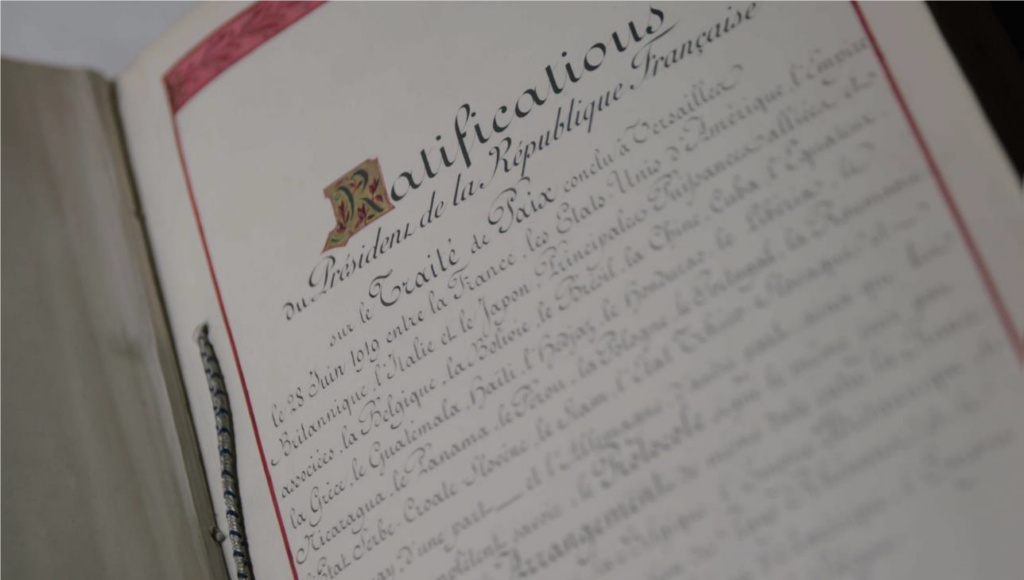 Ratifications
du Président de la République Française
sur le Traité de Paix conclu à Versailles
le 28 Juin 1919 entre la France, les Etats-Unis d'Amérique, l'Empire
Britannique, l'Italie et le Japon, Principales Puissances alliées et
associées, la Belgique, la Bolivie, le Brésil, la Chine, Cuba, l'Equateur,
la Grèce, le Guatemala, Haïti, l'Hedjaz, le Honduras, le Libéria, le
Nicaragua, le Panama, le Pérou, la Pologne, le Portugal, la Roumanie
l'Etat Serbe-Croate-Slovène, le Siam, l'Etat Tchéco-Slovaque et
d'une part, et l'Allemagne d'autre part, ainsi que
complètent, savoir, le Protocole signé le même jour
Arrangement de même date entre la France
la Belgique, l'Empire Britannique et